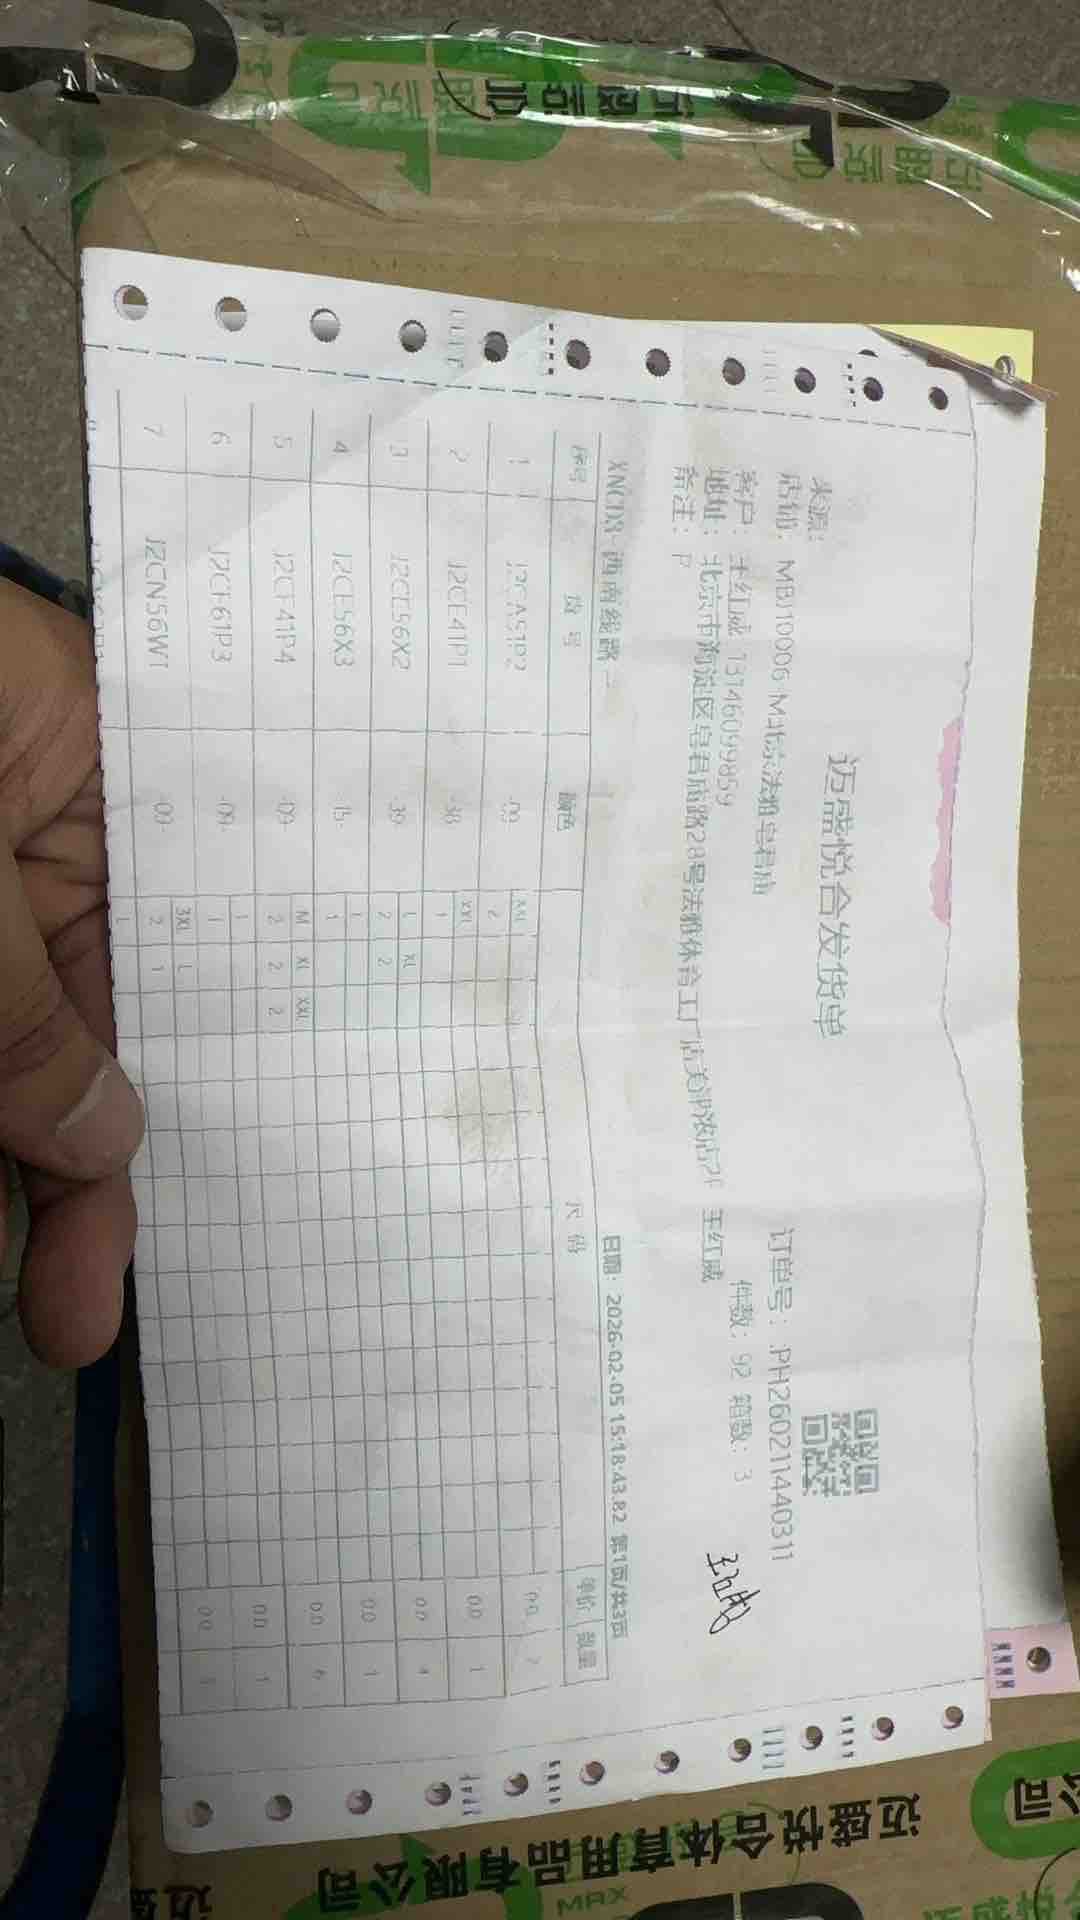 迈盛悦合发货单
来源:
店铺: MBJ10006-M北京法雅皂君庙
订单号: PH260211440311
客户: 王红威 13146099859
件数: 92 箱数: 3
地址: 北京市海淀区皂君庙路28号法雅休合工厂店 2F 王红威
备注: P
XNCD3-西南线路二
日期: 2026-02-05 15:18:43.82 第1页/共3页
序号 货号 颜色 尺码 单价 数量
XXL
1 J2CA51P2 -09- 2 0.0 2
XXL
2 J2CE41P1 -38- 1 0.0 1
L XL
3 J2CE56X2 -39- 2 2 0.0 4
L
4 J2CE56X3 -15- 1 0.0 1
M XL XXL
5 J2CF41P4 -09- 2 2 2 0.0 6
L
6 J2CF61P3 -09- 1 0.0 1
3XL L
7 J2CN56W1 -09- 2 1 0.0
L
迈盛悦合体育用品有限公司
MAX
公司